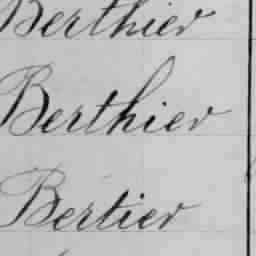 Berthier
Berthier
Bertier